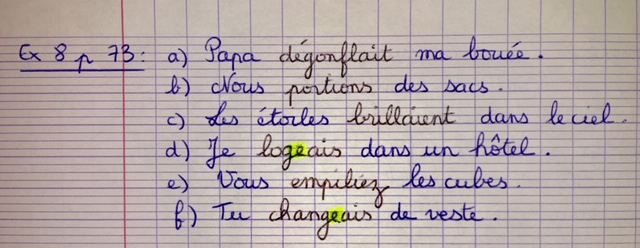 Ex 8 p 73 : a) Papa dégonflait ma bouée.
b) Nous portions des sacs.
c) Les étoiles brillaient dans le ciel.
d) Je logeais dans un hôtel.
e) Vous empiliez les cubes.
f) Tu changeais de veste.